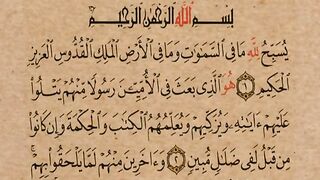 بِسْمِ اللَّهِ الرَّحْمَٰنِ الرَّحِيمِ
يُسَبِّحُ لِلَّهِ مَا فِي السَّمَٰوَٰتِ وَمَا فِي الْأَرْضِ الْمَلِكِ الْقُدُّوسِ الْعَزِيزِ
الْحَكِيمِ ١ هُوَ الَّذِي بَعَثَ فِي الْأُمِّيِّينَ رَسُولًا مِنْهُمْ يَتْلُوا
عَلَيْهِمْ ءَايَٰتِهِ وَيُزَكِّيهِمْ وَيُعَلِّمُهُمُ الْكِتَٰبَ وَالْحِكْمَةَ وَإِنْ كَانُوا
مِنْ قَبْلُ لَفِي ضَلَٰلٍ مُبِينٍ ٢ وَءَاخَرِينَ مِنْهُمْ لَمَّا يَلْحَقُوا بِهِمْ